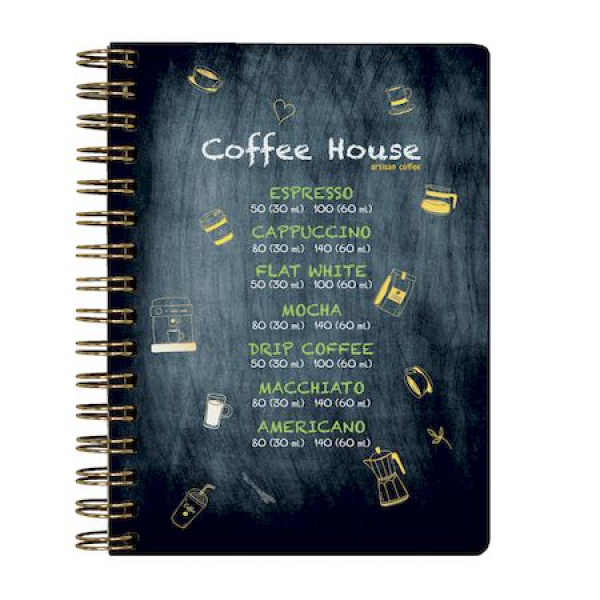 Coffee House
artisan coffee
ESPRESSO
50 (30 ml) 100 (60 ml)
CAPPUCCINO
80 (30 ml) 140 (60 ml)
FLAT WHITE
50 (30 ml) 100 (60 ml)
MOCHA
80 (30 ml) 140 (60 ml)
DRIP COFFEE
50 (30 ml) 100 (60 ml)
MACCHIATO
80 (30 ml) 140 (60 ml)
AMERICANO
80 (30 ml) 140 (60 ml)
coffee